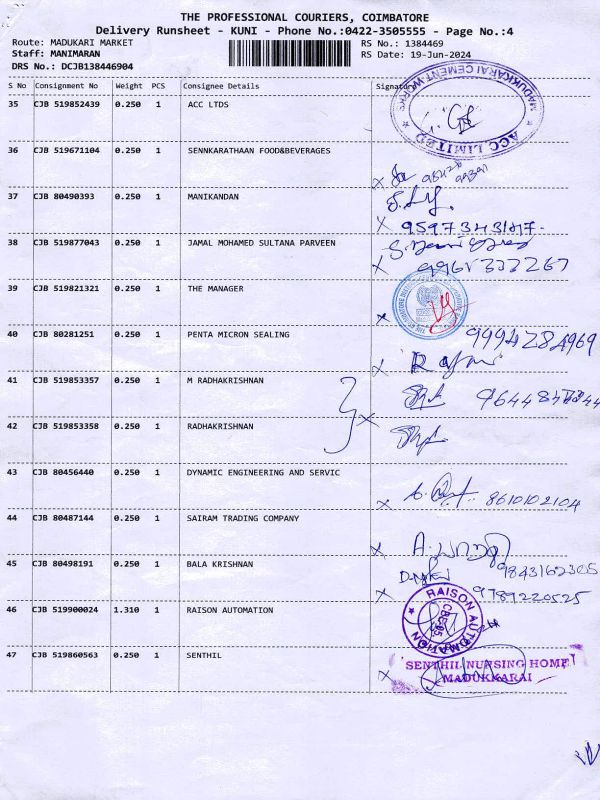 THE PROFESSIONAL COURIERS, COIMBATORE
Delivery Runsheet - KUNI - Phone No.:0422-3505555 - Page No.:4
Route: MADUKARI MARKET
RS No.: 1384469
Staff: MANIMARAN
RS Date: 19-Jun-2024
DRS No.: DCJB138446904
S No Consignment No Weight PCS Consignee Details Signature
35 CJB 519852439 0.250 1 ACC LTDS
MADUKKARAI CEMENT WORKS
ACC LIMITED
36 CJB 519671104 0.250 1 SENNKARATHAAN FOOD&BEVERAGES
37 CJB 80490393 0.250 1 MANIKANDAN
38 CJB 519877043 0.250 1 JAMAL MOHAMED SULTANA PARVEEN
39 CJB 519821321 0.250 1 THE MANAGER
40 CJB 80281251 0.250 1 PENTA MICRON SEALING
9994284969
41 CJB 519853357 0.250 1 M RADHAKRISHNAN
42 CJB 519853358 0.250 1 RADHAKRISHNAN
43 CJB 80456440 0.250 1 DYNAMIC ENGINEERING AND SERVIC
8610102104
44 CJB 80487144 0.250 1 SAIRAM TRADING COMPANY
45 CJB 80498191 0.250 1 BALA KRISHNAN
9843162305
9789220525
46 CJB 519900024 1.310 1 RAISON AUTOMATION
RAISON AUTOMATION
47 CJB 519860563 0.250 1 SENTHIL
SENTHIL NURSING HOME
MADUKKARAI